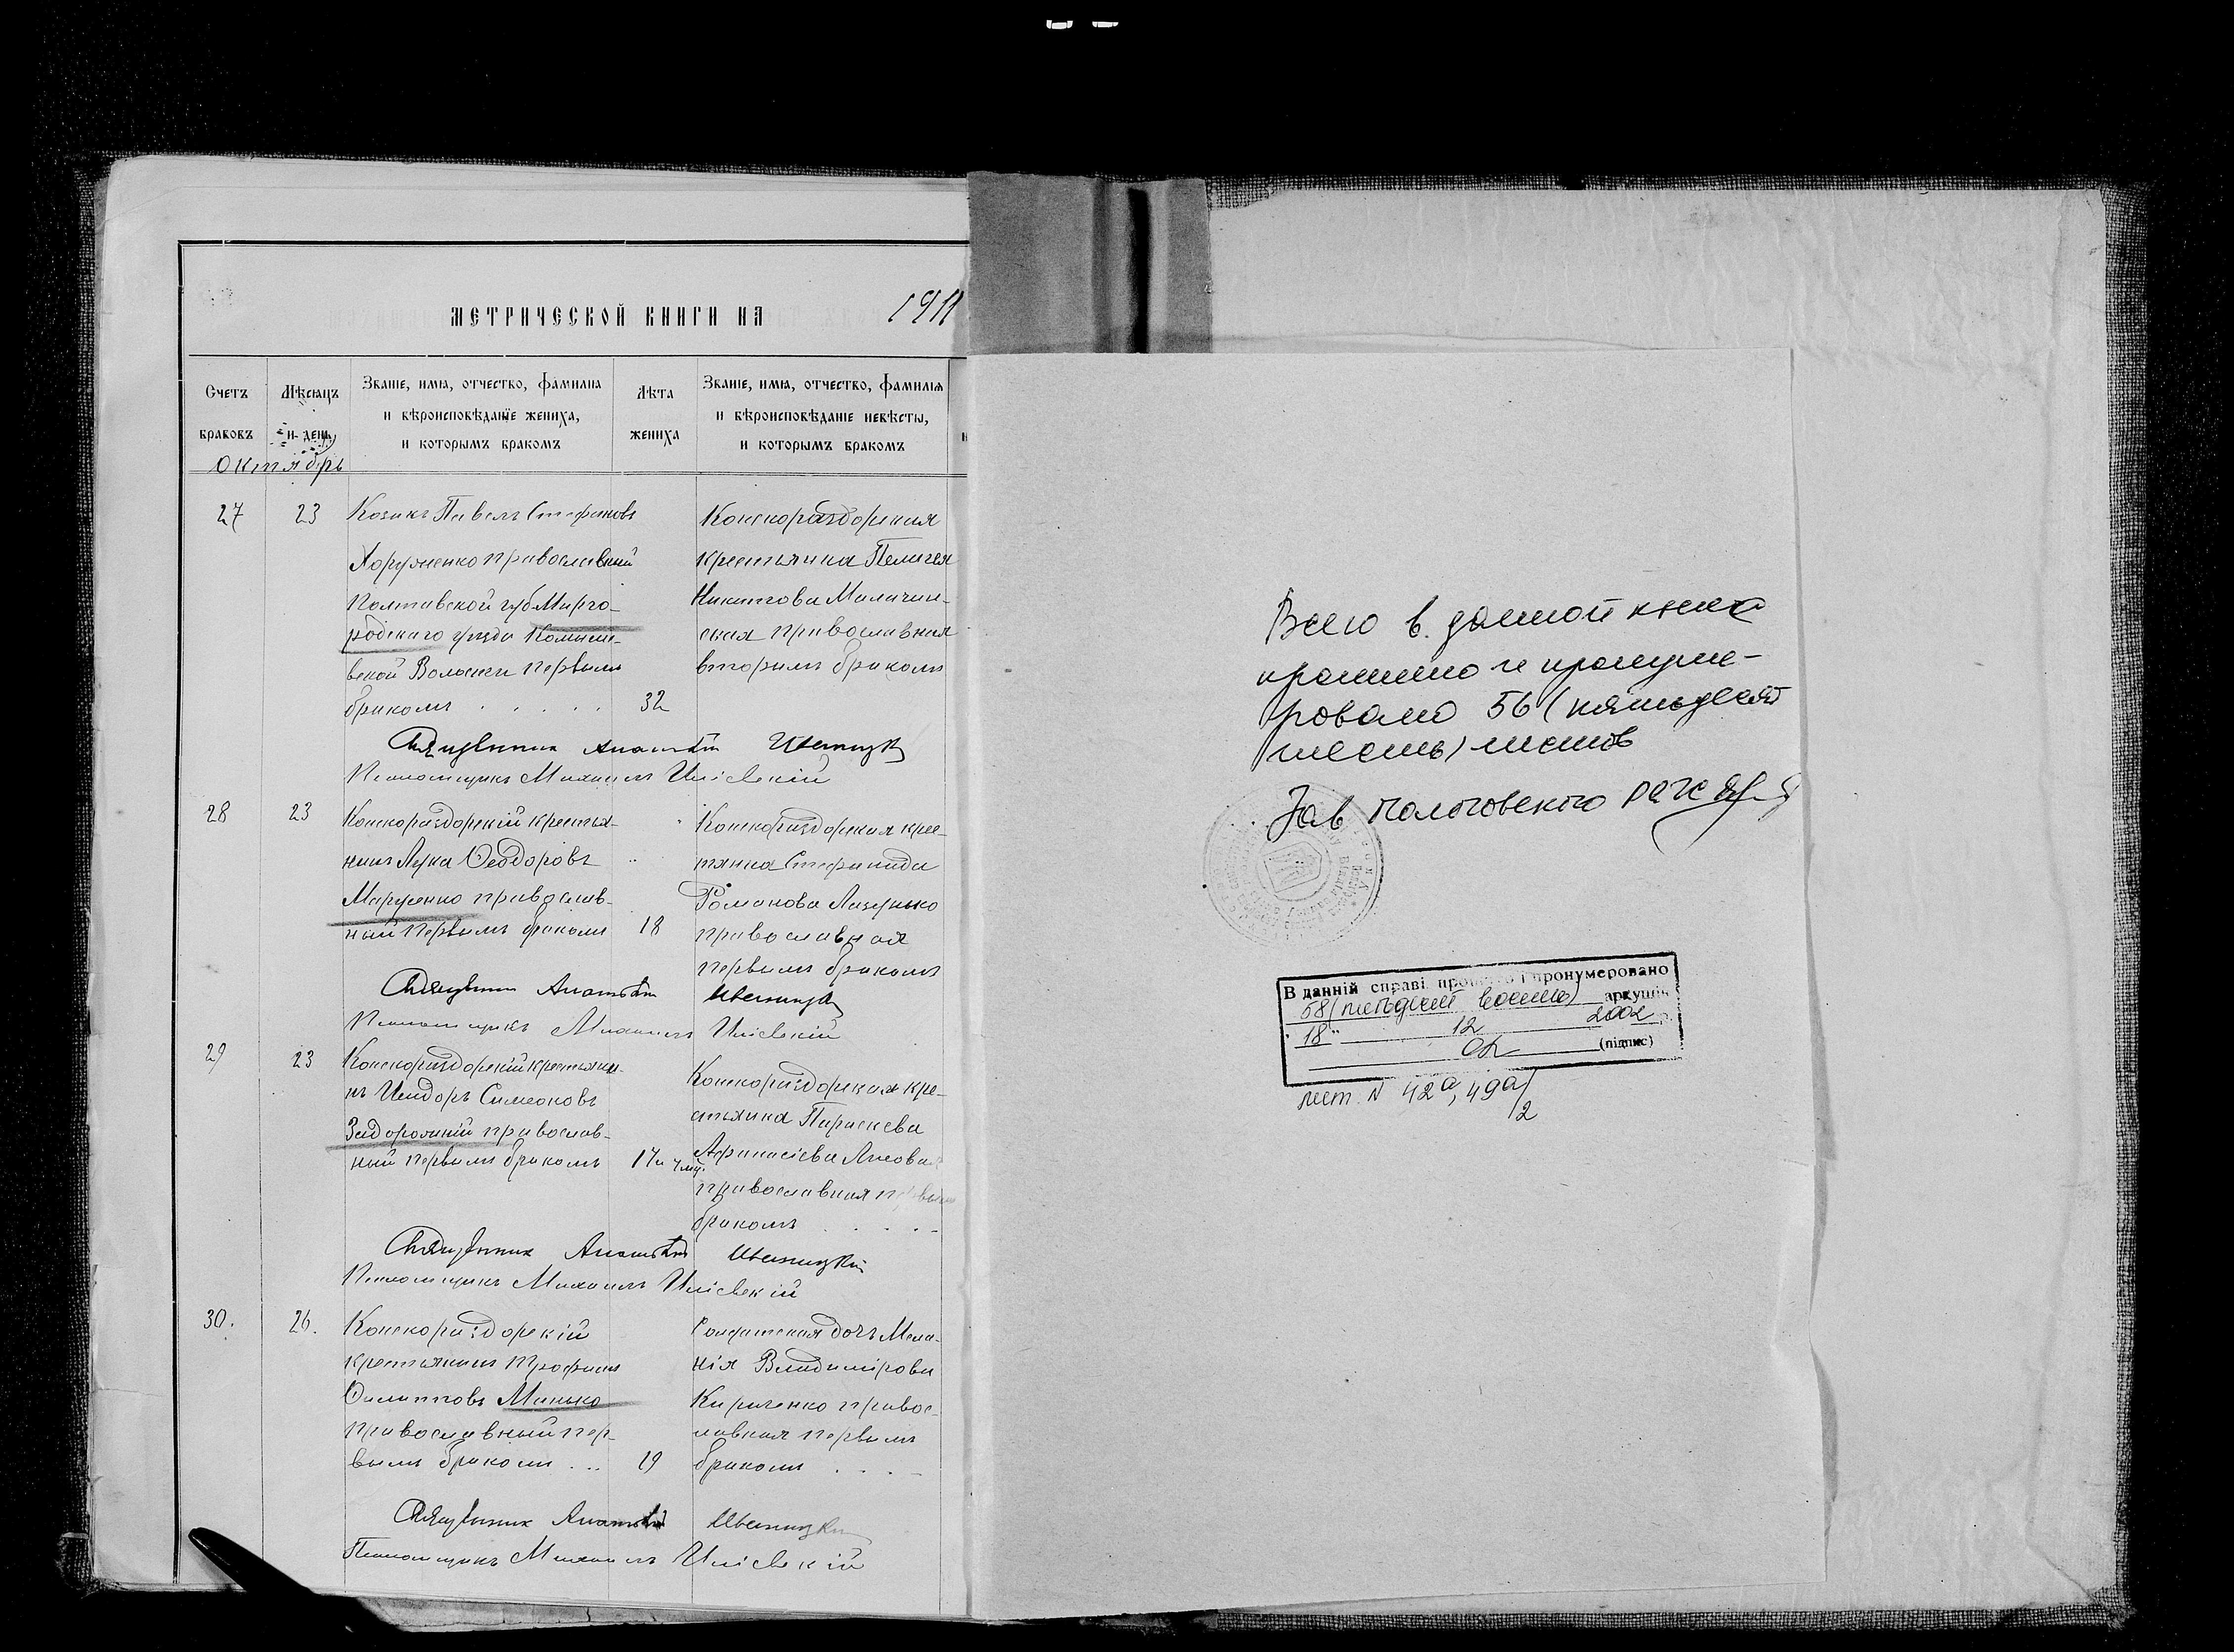 МЕТРИЧЕСКОЙ КНИГИ НА 1911
Счетъ браковъ
Мѣсяцъ и день
Званіе, имя, отчество, фамилія и вѣроисповѣданіе жениха, и которымъ бракомъ
Лѣта жениха
Званіе, имя, отчество, фамилія и вѣроисповѣданіе невѣсты, и которымъ бракомъ
Октябрь
27
23
Козакъ Павелъ Стефановъ
Хоруженко православный
Полтавской губ. Мирго-
родскаго уѣзда Комыше-
вской Волости первымъ
бракомъ . . . . . 32
Конскораздорская
крестьянка Пелагея
Никитова Маличин-
ская православная
вторымъ бракомъ
Священник Анатолій
Псаломщикъ Михаилъ
28
23
Конскораздорскій крестья-
нинъ Лука Ѳеодоровъ
Марченко православ-
ный первымъ бракомъ 18
Конскораздорская крес-
тянка Стефанида
Романова Лазунько
православная
первымъ бракомъ
Священник Анатолій
Псаломщикъ Михаилъ
29
23
Конскораздорскій крестьяни-
нъ Исидоръ Симеоновъ
Задорожній православ-
ный первымъ бракомъ 17 и
Конскораздорская кре-
стьянка Параскева
Афанасіева
православная первымъ
бракомъ . . . .
Священник Анатолій
Псаломщикъ Михаилъ
30.
26.
Конскораздорскій
крестьянинъ Трофимъ
Филипповъ Манько
православный пер-
вымъ бракомъ . . . 19
Солдатская дочь Мела-
нія Владимірова
Кириченко правос-
лавная первымъ
бракомъ . . . .
Священник Анатолій
Псаломщикъ Михаилъ
Всего в данной книге
прошито и пронуме-
ровано 56 (пятьдесят
шесть) листов
Зав Пологовского
В данній справі прошито і пронумеровано
58 (пятьдесят восемь) аркушів
"18" 12 2002 р.
(підпис)
лист. N 42а, 49а/2